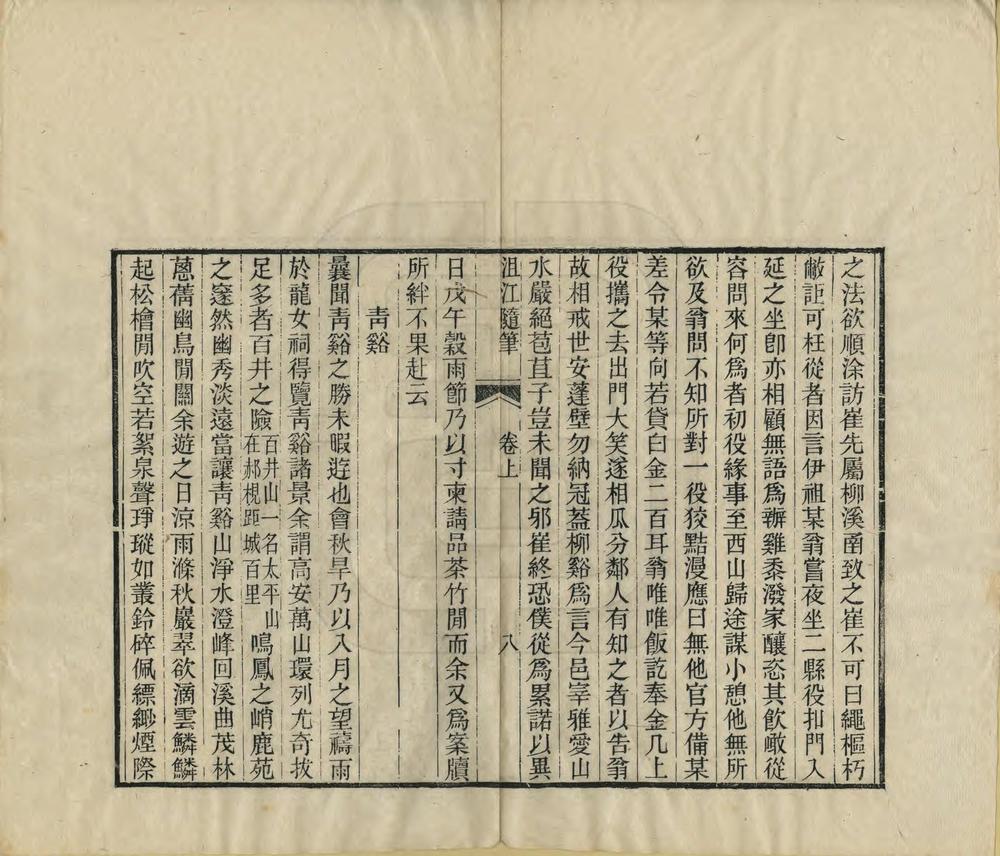 之法欲順涂訪崔先屬柳溪圅致之崔不可曰繩樞朽
敝詎可枉從者因言伊祖某翁嘗夜坐二縣役扣門入
延之坐卽亦相顧無語爲辦雞黍潑家釀恣其飲噉從
容問來何爲者初役緣事至西山歸途謀小憩他無所
欲及翁問不知所對一役狡黠漫應曰無他官方備某
差令某等向若貸白金二百耳翁唯唯飯訖奉金几上
役攜之去出門大笑遂相瓜分鄰人有知之者以告翁
故相戒世安蓬壁勿納冠蓋柳谿爲言今邑宰雅愛山
水嚴絕苞苴子豈未聞之邪崔終恐僕從爲累諾以異
沮江隨筆 卷上 八
日戊午穀雨節乃以寸柬請品茶竹閒而余又爲案牘
所絆不果赴云
青谿
曩聞青谿之勝未暇遊也會秋旱乃以入月之望禱雨
於龍女祠得覽青谿諸景余謂高安萬山環列尤奇拔
足多者百井之險百井山一名太平山在郝梘距城百里鳴鳳之峭鹿苑
之邃然幽秀淡遠當讓青谿山淨水澄峰回溪曲茂林
蔥蒨幽鳥閒關余遊之日涼雨滌秋巖翠欲滴雲鱗鱗
起松檜閒吹空若絮泉聲琤瑽如叢鈴碎佩縹緲煙際